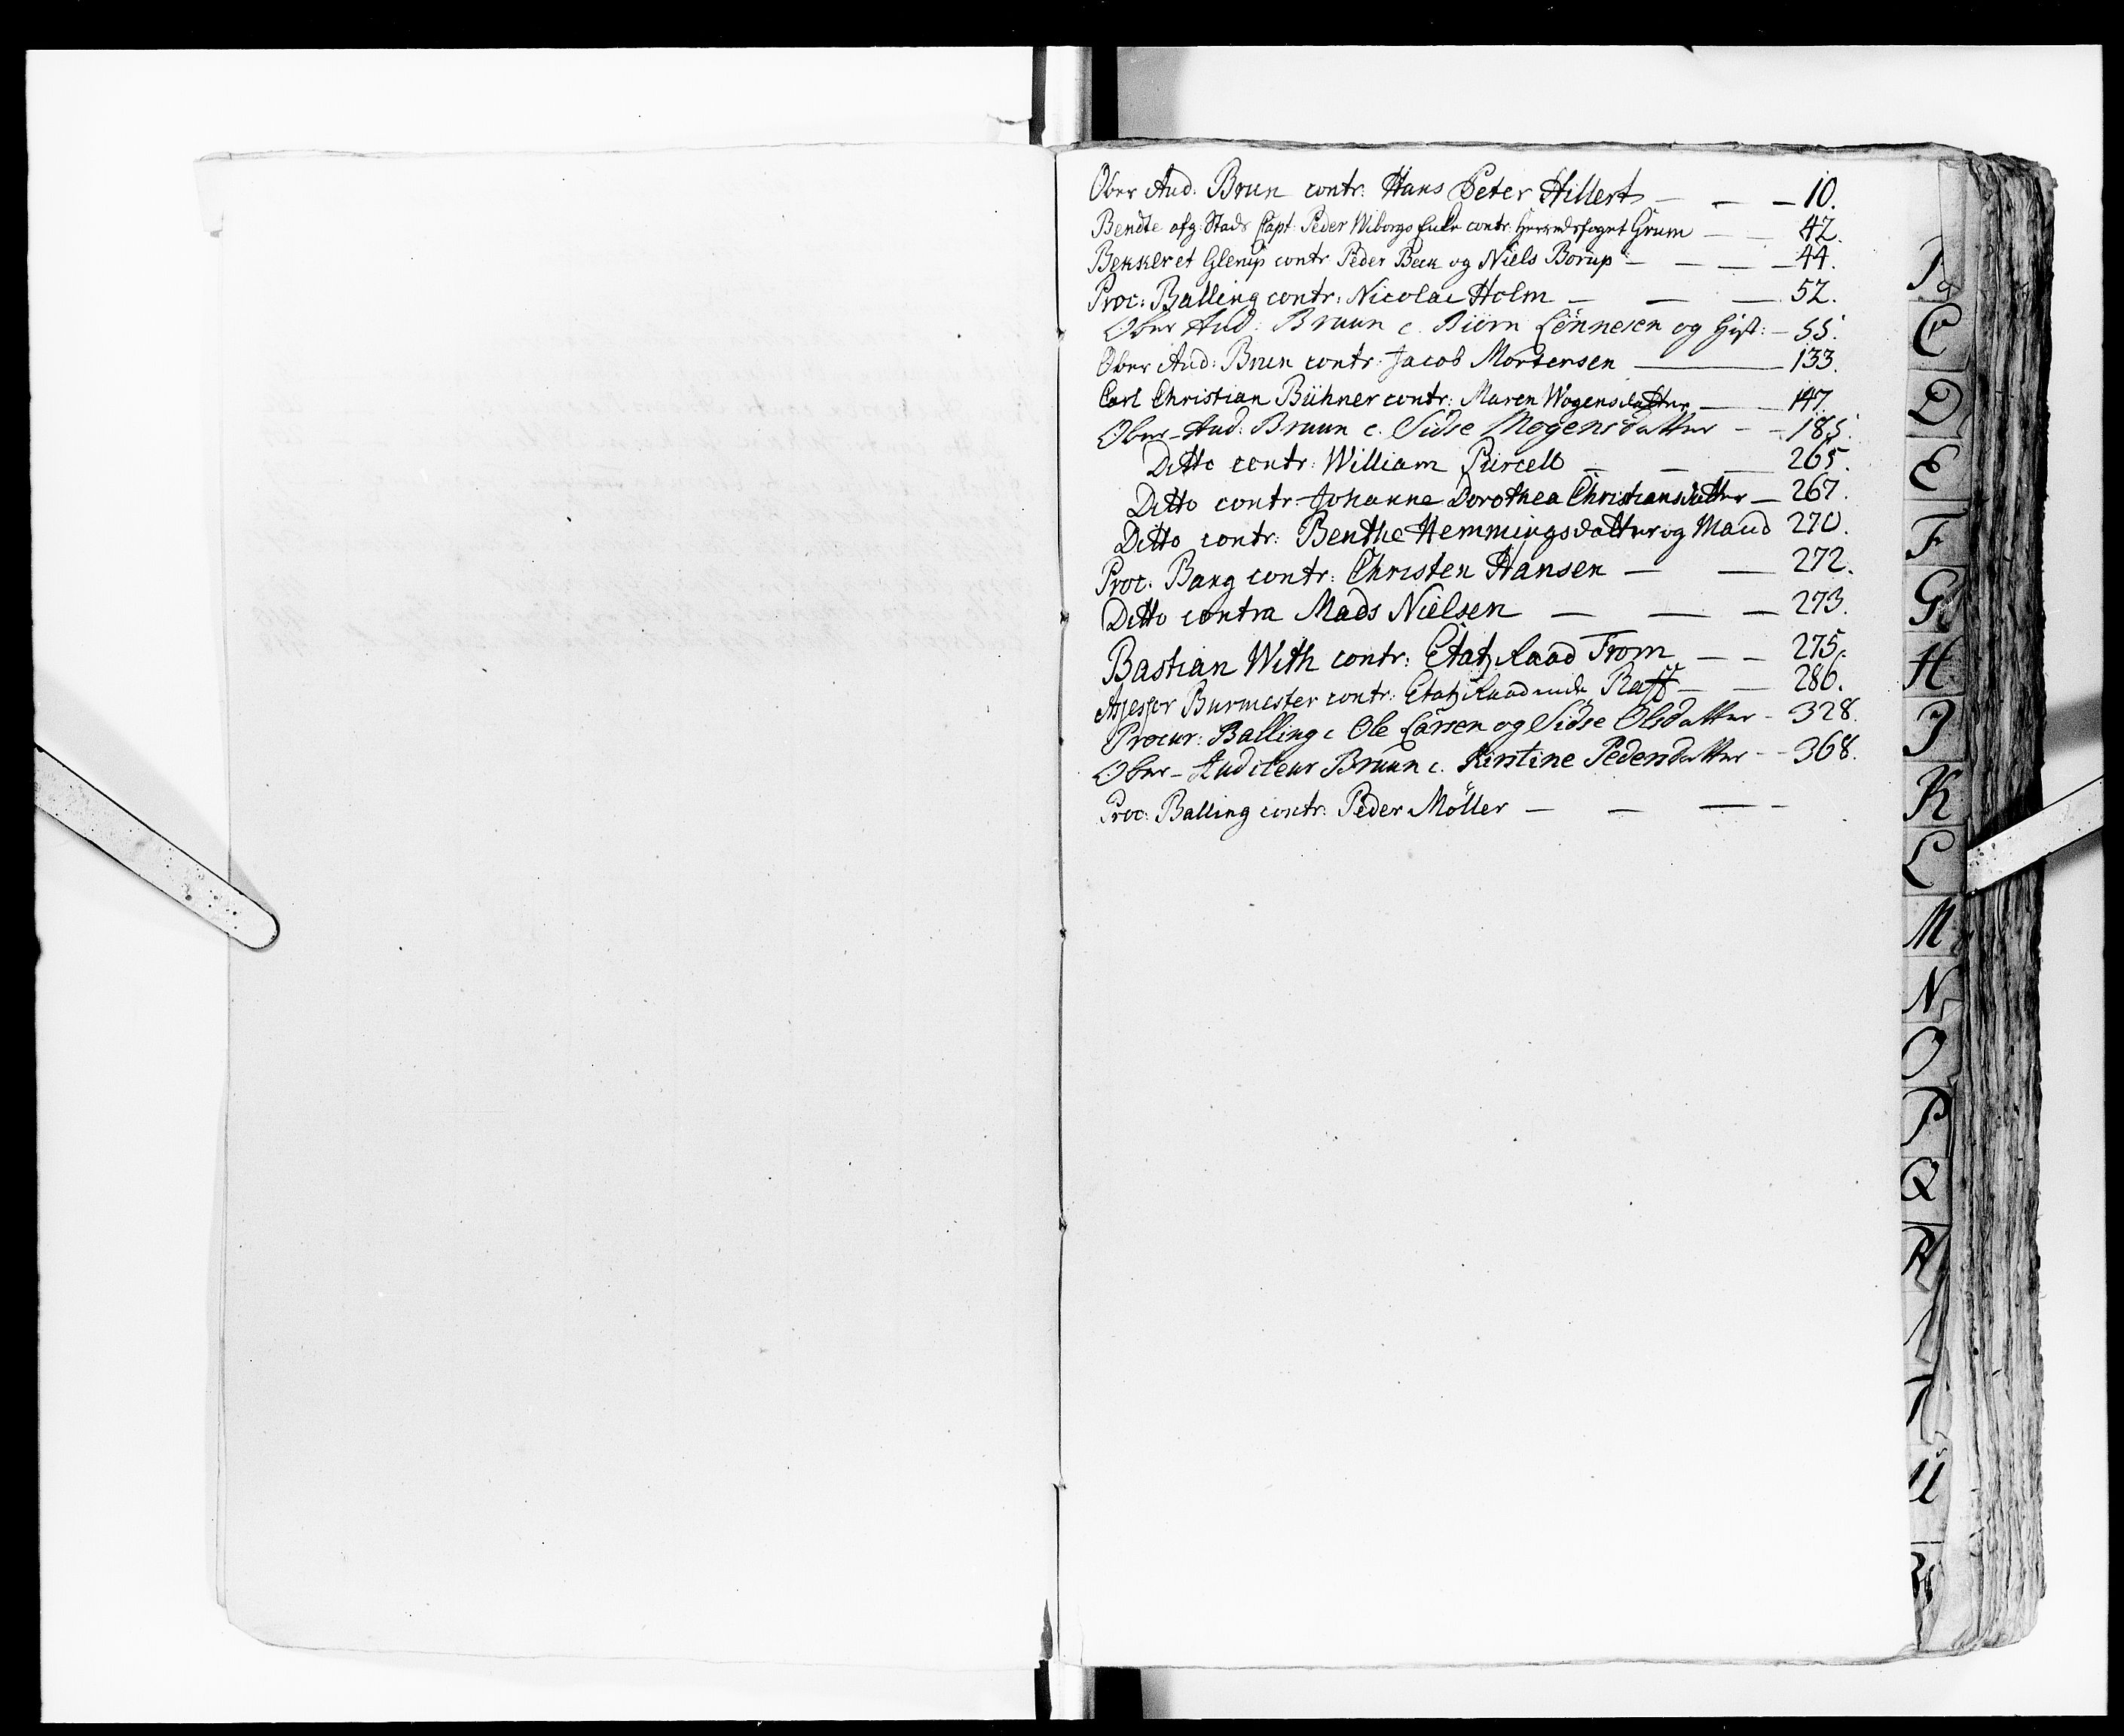 Ober Aud: Brun contr: Hans Peter Hillert — — — 10.
Bendte afg: Stads Capt: Peder Wiborgs Enke contr: Herredsfoget Grum — — 42.
Bekker et Glerup contr Peder Beck og Niels Borup — — — — 44.
Proc: Balling contr: Nicolai Holm — — — 52.
Ober Aud: Bruun c. Biörn Lönnesen og Hust: — 55.
Ober Aud: Brun contr: Jacob Mortensen — 133.
Carl Christian Bühner contr: Maren Wogensdatter — — 147
Ober-Aud: Bruun c. Sidse Mogensdatter — — 185.
Ditto contr: William Purcell — — — 265.
Ditto contr: Johanne Dorothea Christiansdatter — 267.
Ditto contr: Benthe Hemmingsdatter og Mand 270.
Proc: Bang contr: Christen Hansen — — 272.
Ditto contra Mads Nielsen — — — 273.
Bastian With contr: Etatz Raad From — — 275.
Assessor Burmester contr: Etatz Raadinde Raff — — 286.
Procur: Balling c Ole Larsen og Sidse Olsdatter - 328.
Ober-Auditeur Bruun c. Kirstine Pedersdatter - - 368.
Proc: Balling contr: Peder Möller — — — -
C
D
E
F
G
H
I
K
L
M
N
O
P
Q
R
T
U